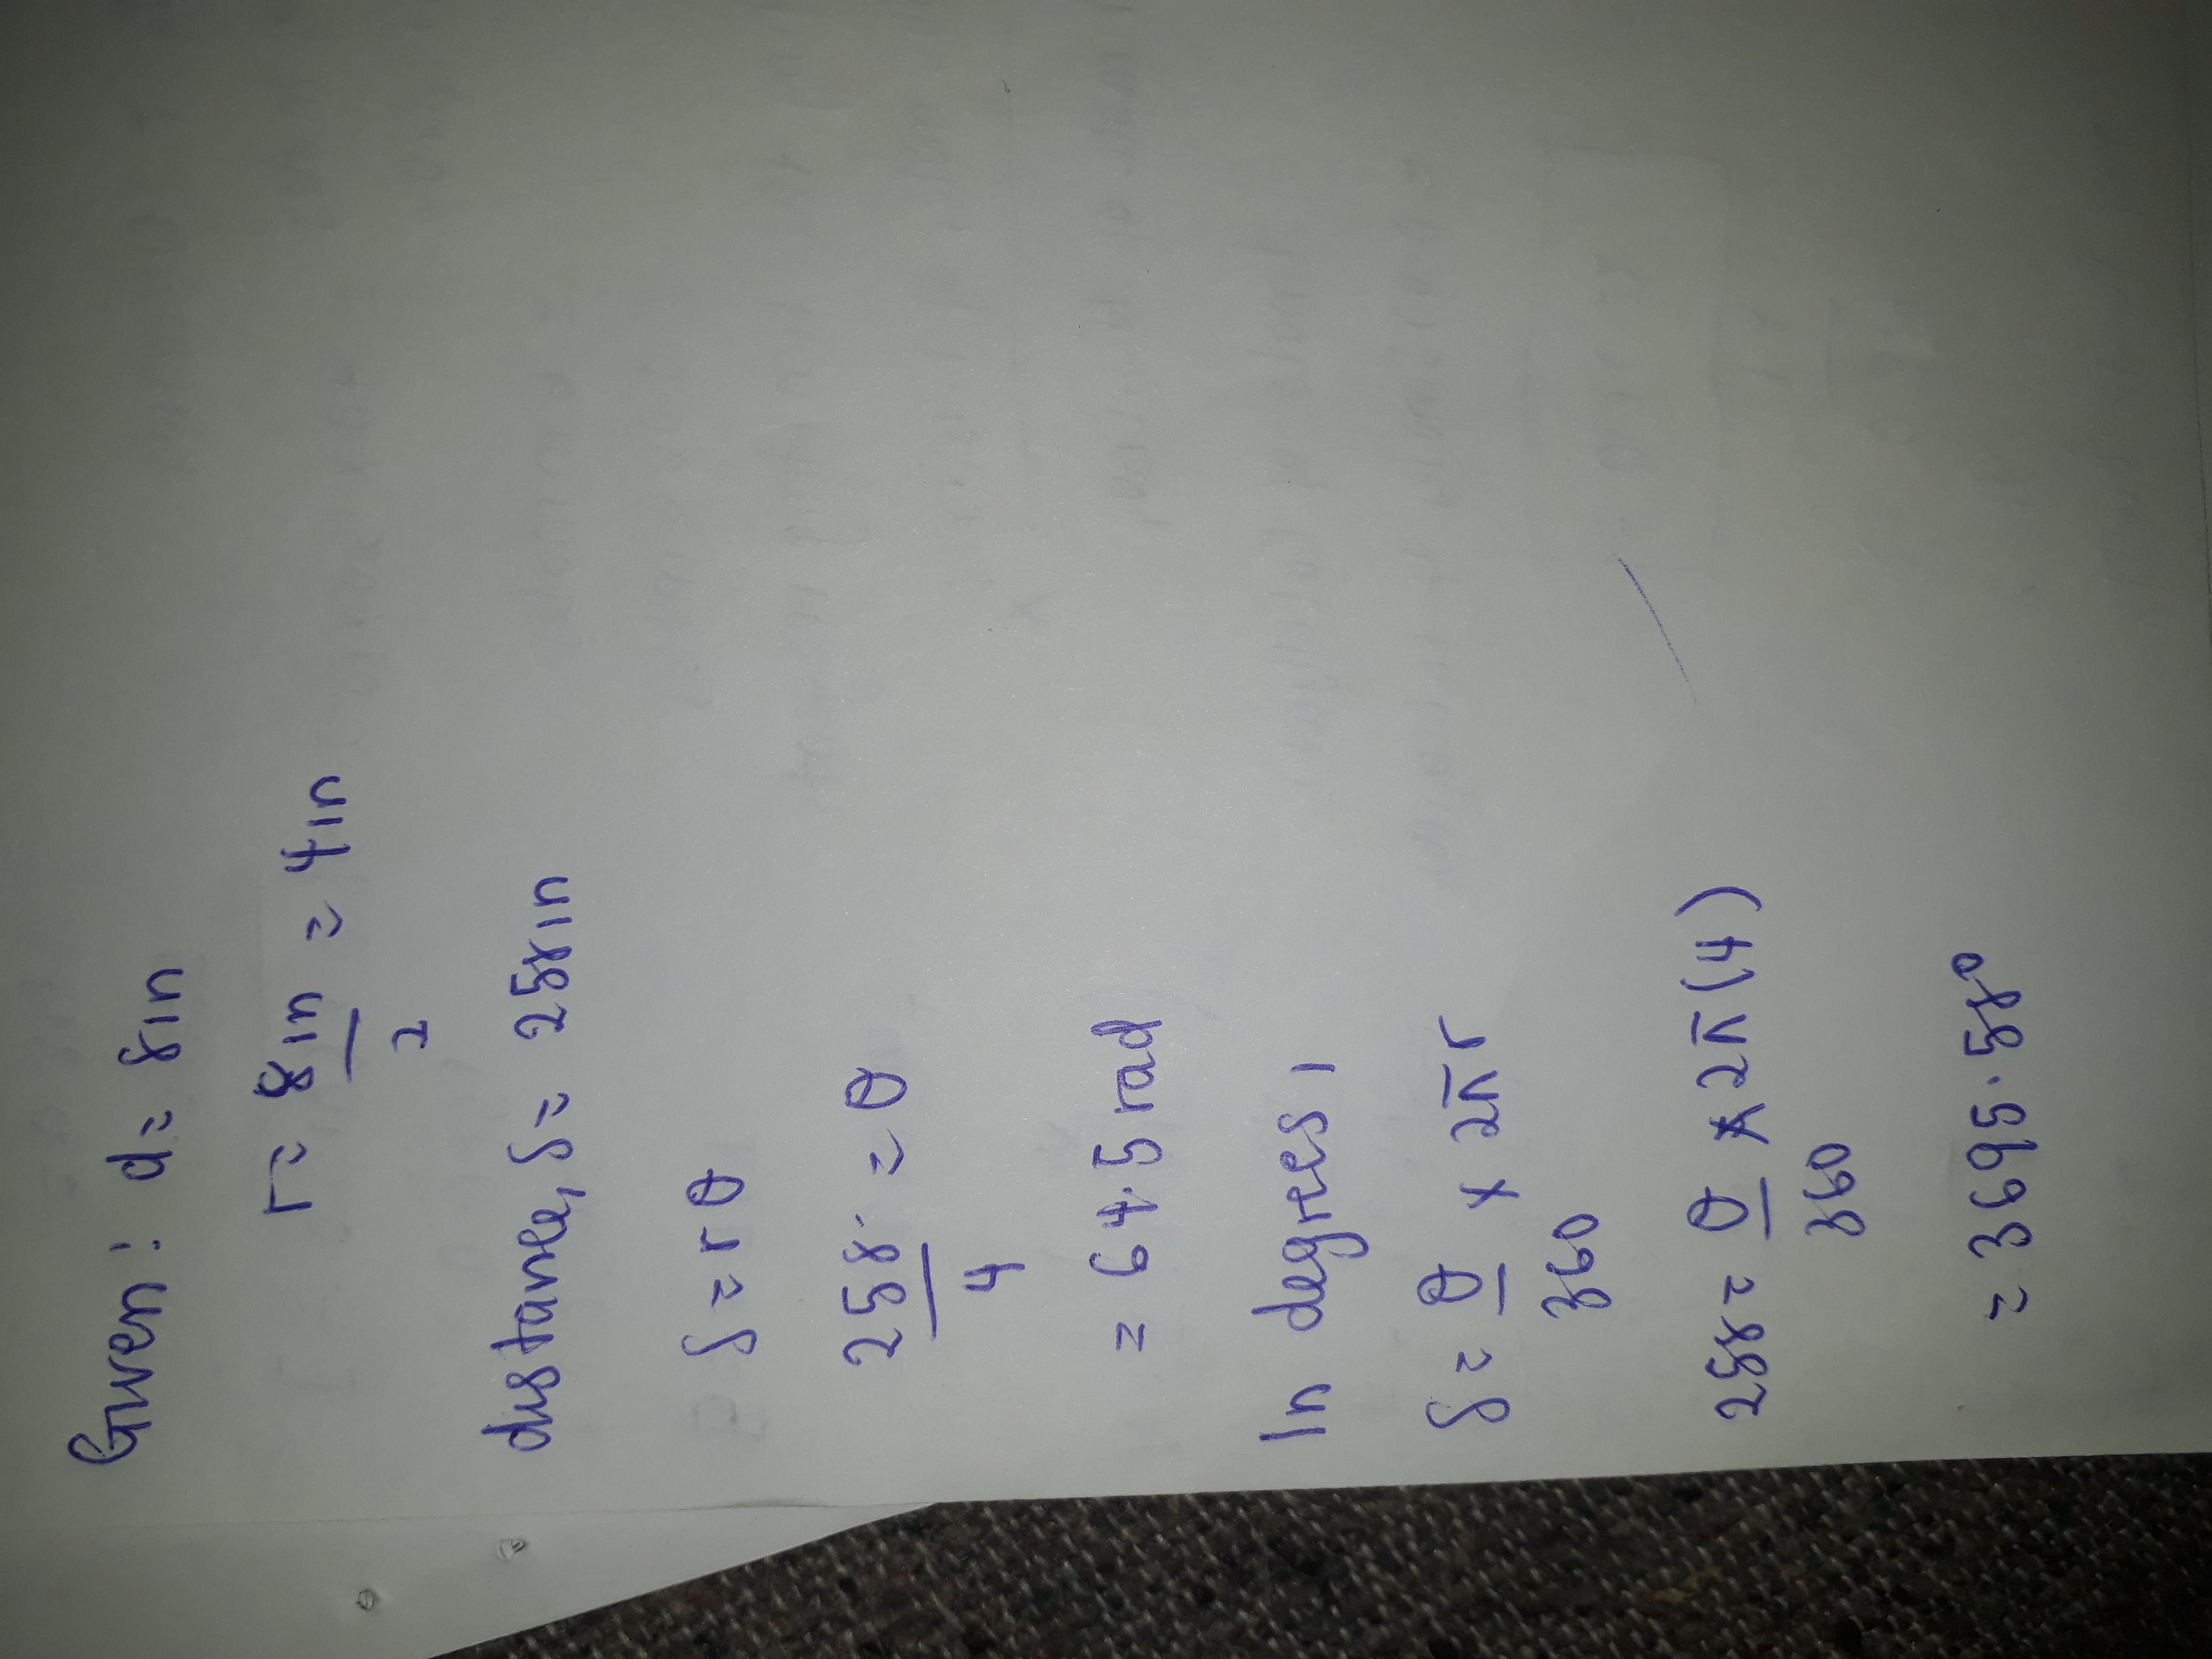 Given: d = 8in
r = 8in/2 = 4in
distance, S = 258in
S = rθ
258/4 = θ
= 64.5 rad
In degrees,
S = θ/360 × 2πr
258 = θ/360 × 2π(4)
= 3695.58°